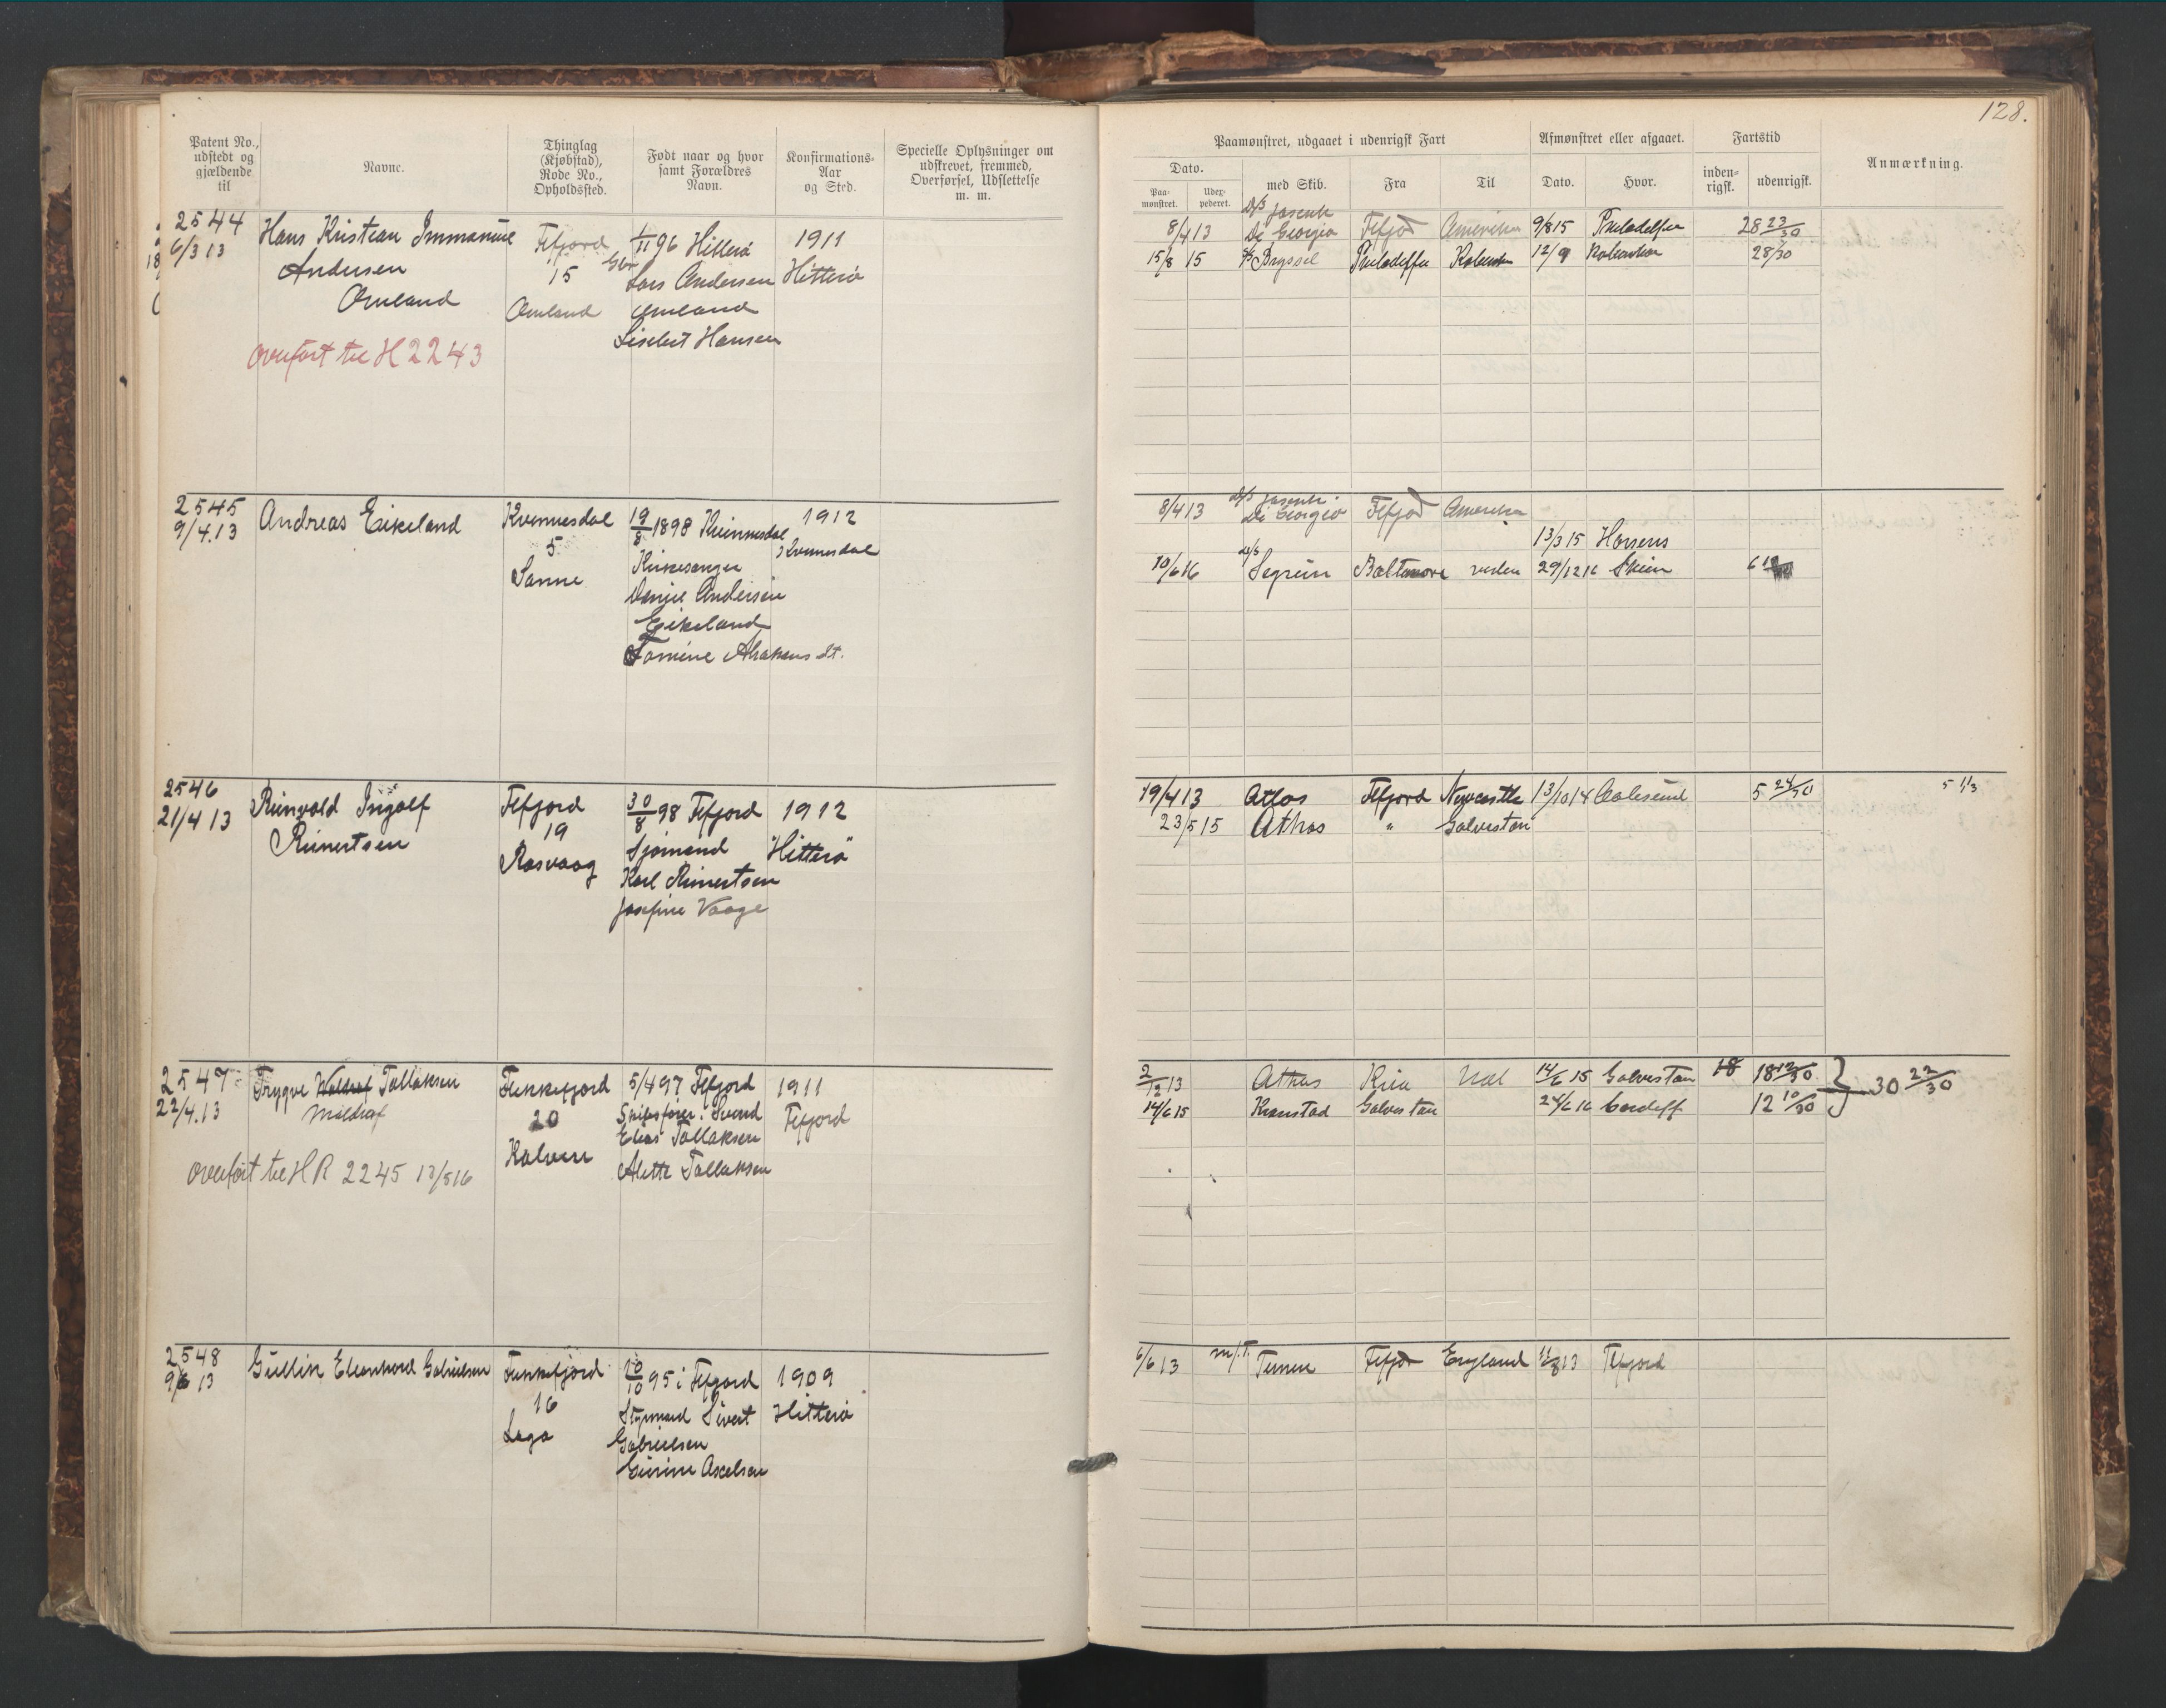 128.
Patent No., udstedt og gjældende til
Navne.
Thinglag (Kjøbstad), Rode No., Opholdssted.
Født naar og hvor samt Forældres Navn.
Konfirmations-Aar og Sted.
Specielle Oplysninger om udskrevet, fremmed, Overførsel, Udslettelse m. m.
Paamønstret, udgaaet i udenrigsk Fart
Dato.
Paamønstret.
Udexpederet.
med Skib.
Fra
Til
Afmønstret eller afgaaet.
Dato.
Hvor.
Fartstid
indenrigsk.
udenrigsk.
Anmærkning.
2544
6/3 13
Hans Kristian Immanuel
Andersen
Omland
overført til H 2243
Flfjord
15
Omland
1/11 96 Hitterø
Gbr
Lars Andersen
Omland
Lisebet Hansen
1911
Hitterø
8/4 13 D/S Joseph Di Georgio Flfjod Amerika 9/8 15 Philadelfia 28 23/30
15/8 15 Bryssel Philadelfia 12/9 28/30
2545
9/4.13
Andreas Eikeland
Kvinnesdal
5
Sanne
19/8 1898 Kvinnesdal
Kirkesanger
Daniel Andersen
Eikeland
Tomine
1912
Kvinnesdal
8/4 13 D/S Joseph Di Georgio Flfjod Amerika
13/3 15 Horsens
10/6 16 D/S Segrun Baltimore verden 29/12 16 Skien 6
2546
21/4 13
Reinvald Ingolf
Reinertsen
Flfjord
19
Rasvaag
30/8 98 Flfjord
Sjømand
Karl Reinertsen
Josefine Vaage
1912
Hitterø
19/4 13 Athos Flfjord Newcastle 13/10 14 Aalesund 5 24/30 5 1/3
23/5 15 Athos " Galveston
2547
22/4.13
Trygve Waldraf Tallaksen
Moldraf
overført til HR 2245 13/5 16
Flekkefjord
20
Kalven
5/4 97 Flfjord
Skibsfører Svend
Elias Tallaksen
Alette Tallaksen
1911
Flfjord
2/12 13 Athos Kria Val 14/6 15 Galveston 18 18 12/30
14/6 15 Kronstad Galveston 24/6 16 Cardeff 12 10/30
30 22/30
2548
9/6 13
Gullik Eleonhard Gabrielsen
Flekkefjord
16
Laga
10/10 95 i Flfjord
Styrmand Sivert
Gabrielsen
Gurine Axelsen
1909
Hitterø
6/6 13 m/T. Flfjor England 8 13 Flfjord